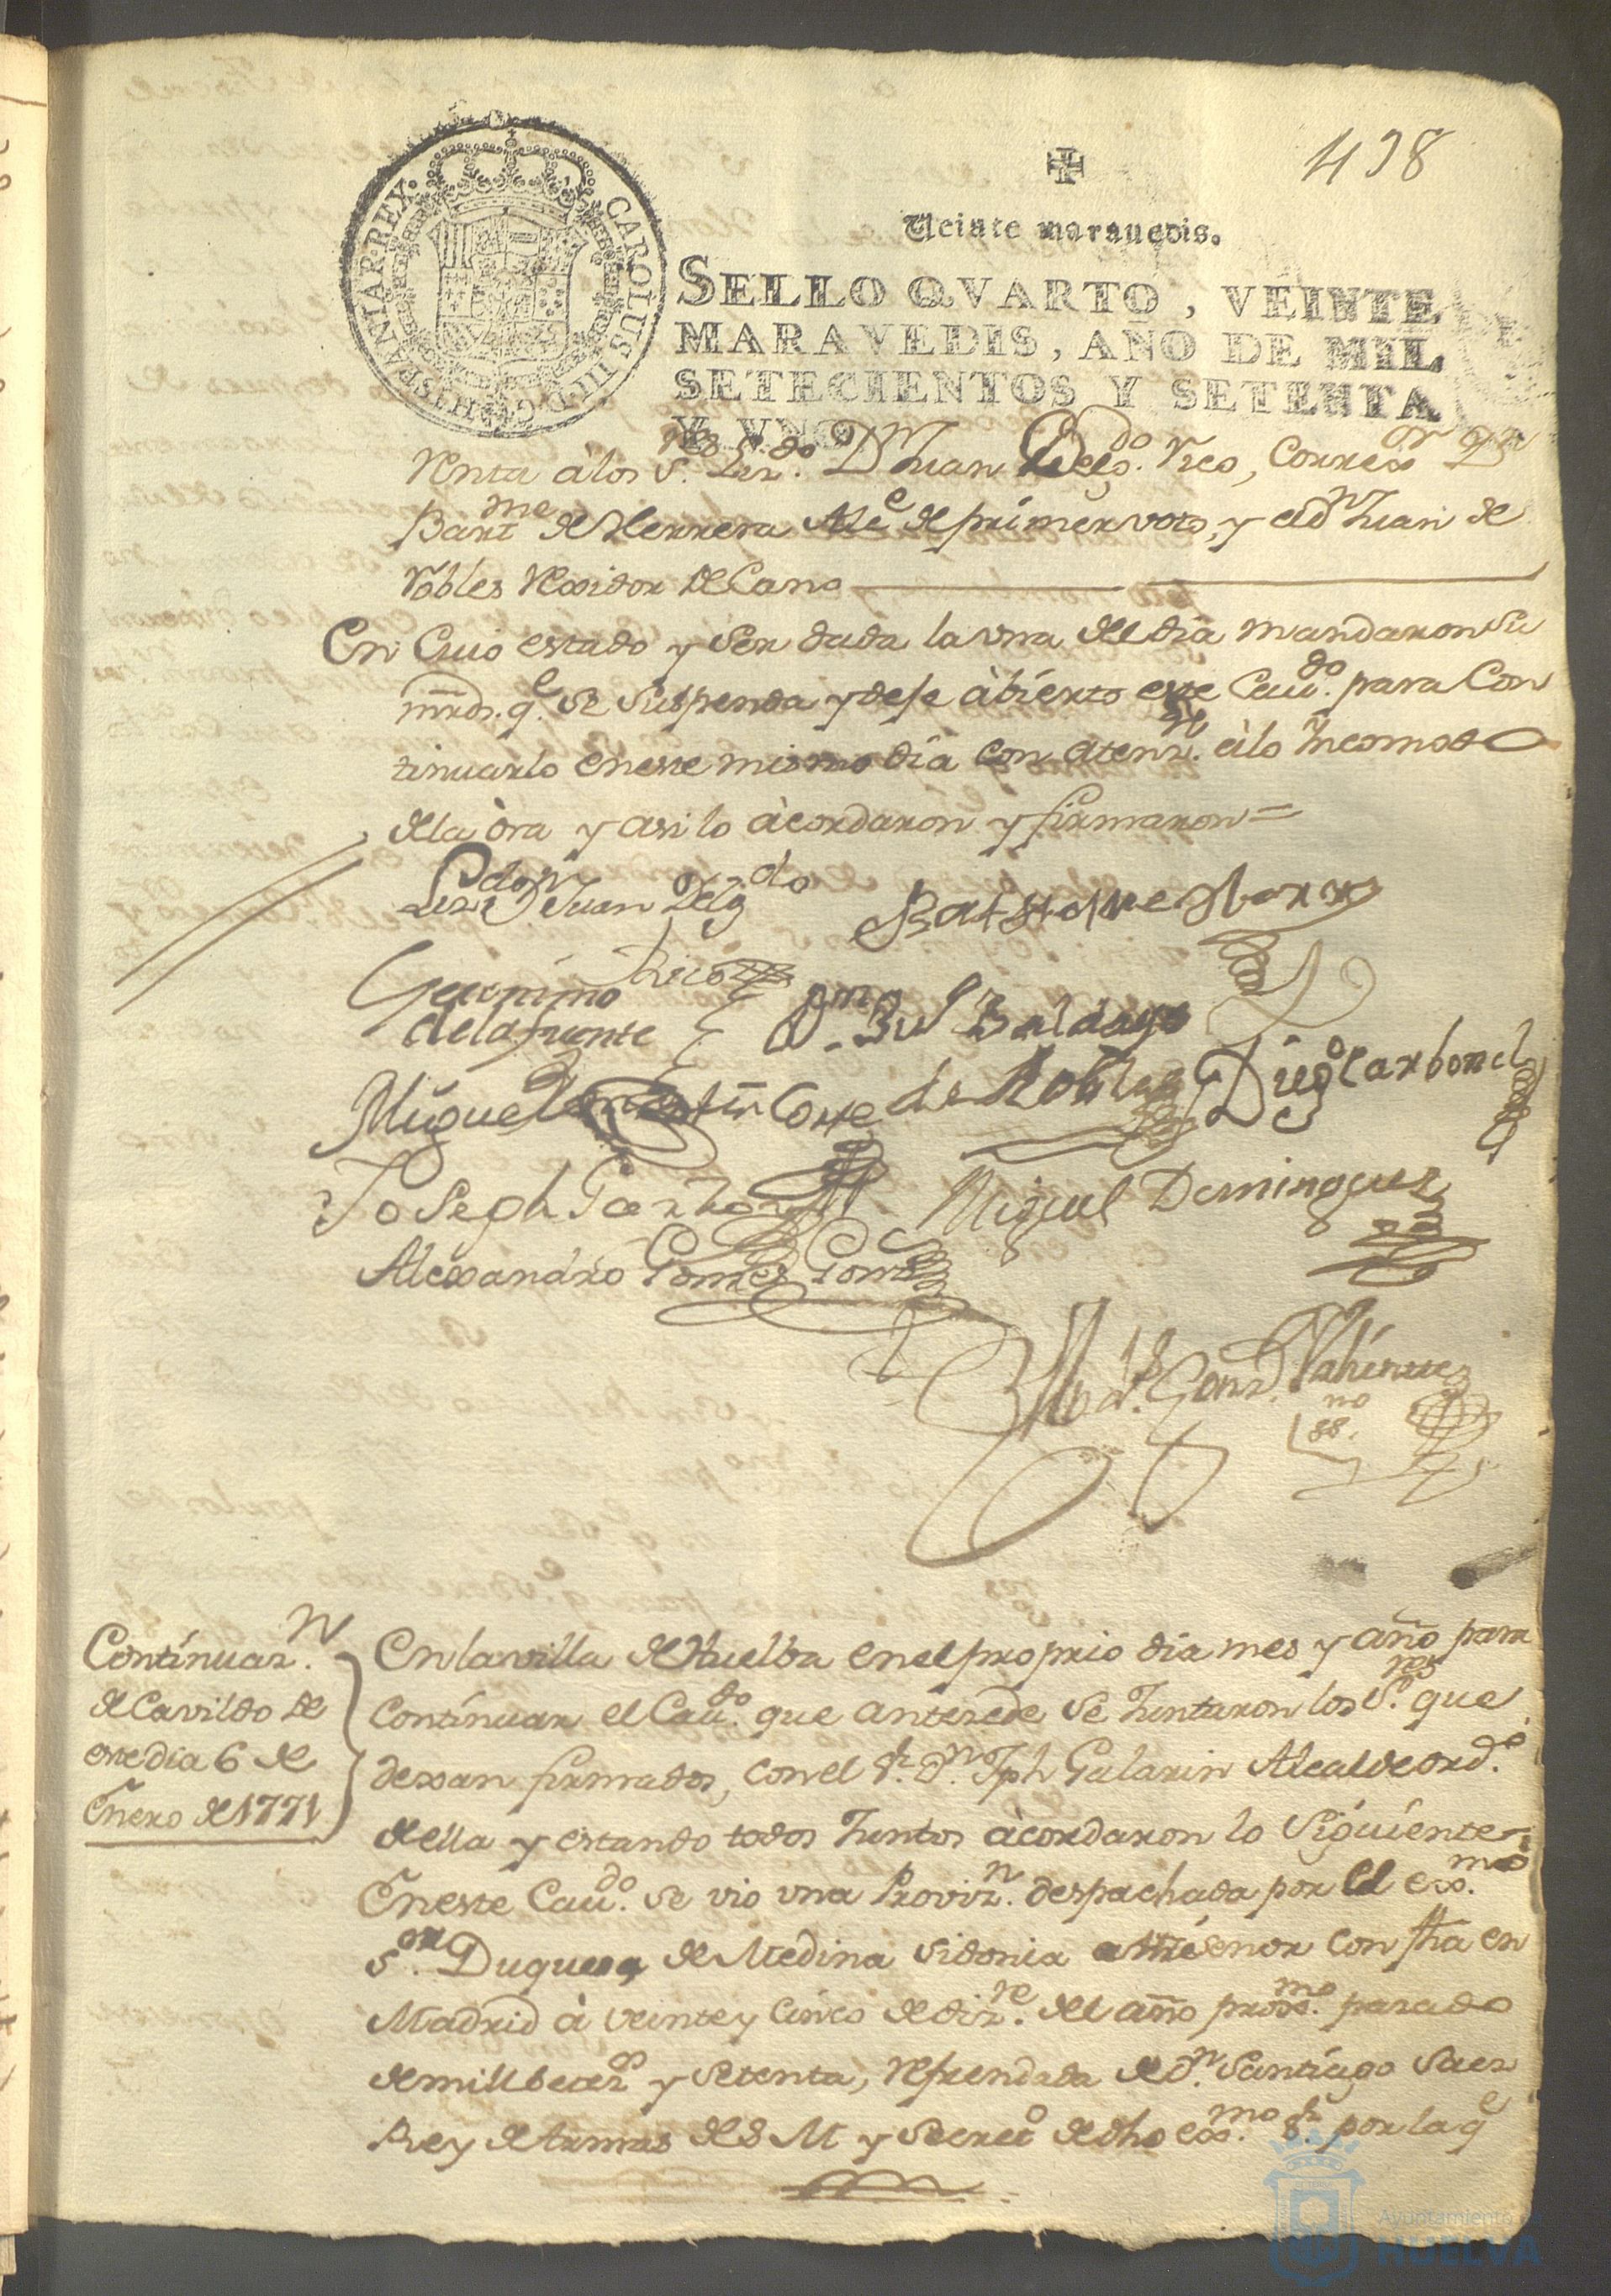 438
Veinte marauedis.
CAROLUS III D G HISPANIAR REX
SELLO QVARTO, VEINTE
MARAVEDIS, AÑO DE MIL
SETECIENTOS Y SETENTA
Y VNO
Venta à los S.res Liz.do Dn Juan Delg.do Rico, Correxor Dn
Bart.me de Herrera Alc.e de primer voto, y el dn Juan de
Robles Rexidor Decano
En Cuio estado y Ser dada la vna del dia mandaron su
mrds. q.e se suspenda y dese àbierto este Cau.do para Con
tinuarlo en este mismo dia con atenz.n àlo Yncomodo
dela òra y asi lo àcordaron y firmaron =
Lizdo Dn Juan Delgdo Bartholome de Herrera
Rico
Geronimo
dela fuente
Miguel Corte de Robles Diego Carbonel
Joseph Miguel Dominguez
Alexandro Gomez
Gonz. Valiente
no
SS.
Continuaz.n
de Cavildo de
este dia 6 de
Enero de 1771
En la villa de Huelba en el proprio dia mes y año para
Continuar el Cau.do que antezede Se Juntaron los S.res que
dexan firmados, con el Sr. Dn. Jph Galarin Alcalde ord.o
de ella y estando todos Juntos àcordaron lo Siguiente
En este Cau.do se vio vna Proviz.n despachada por el exo.mo
S.or Duque de Medina Sidonia mi señor con fha en
Madrid à veinte y Cinco de diz.re del año proxs.mo pasado
de mill setez.os y Setenta, Refrendada de dn. Santiago Saez
Rey de Armas de S M y Secreto de dho exo.mo Sr. por la qe
Ayuntamiento de
HUELVA